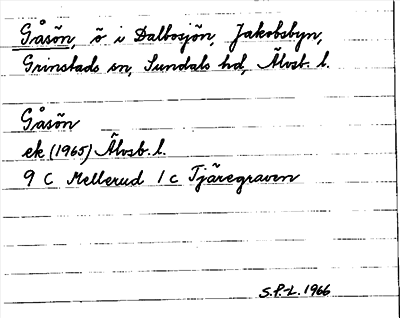 Gåsön, ö i Dalbosjön, Jakobsbyn,
Grinstads sn, Sundals hd, Älvsb. l.
Gåsön
ek (1965) Älvsb. l.
9 C Mellerud 1 c Tjäregraven
S.P.-L. 1966